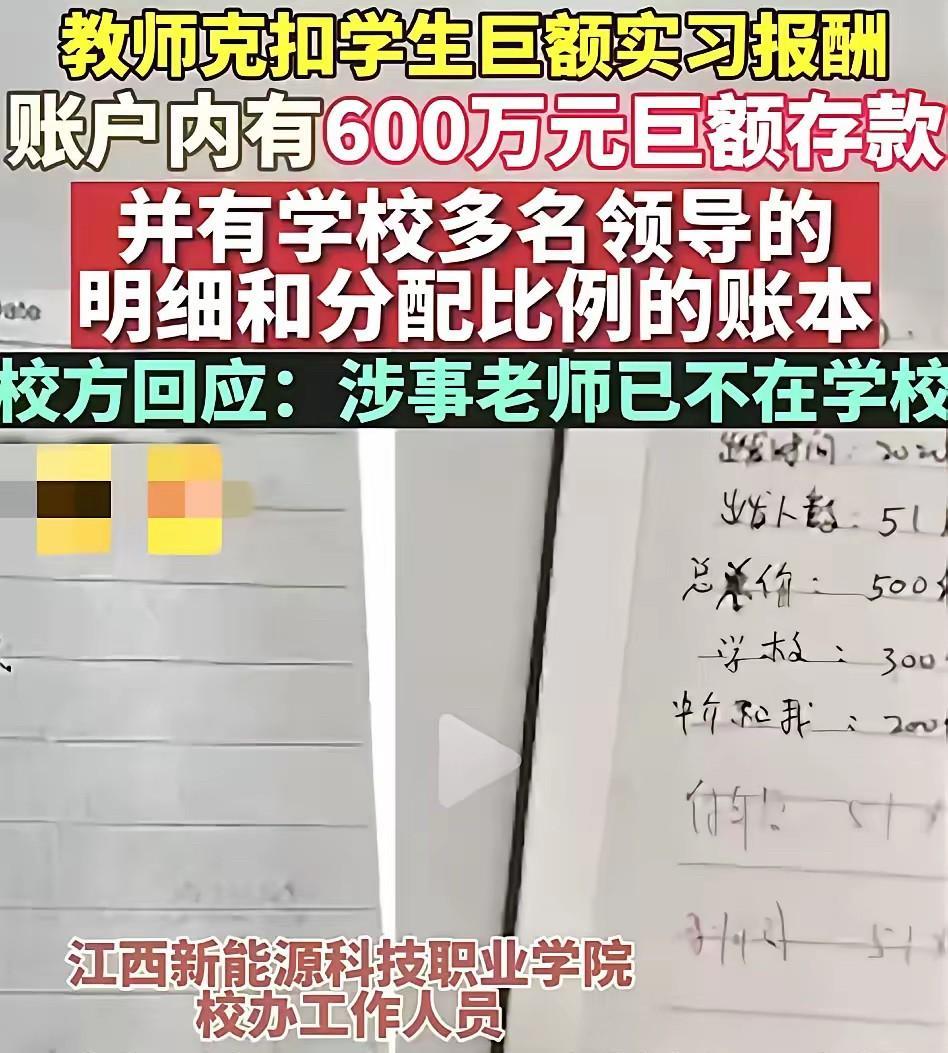 教师克扣学生巨额实习报酬
账户内有600万元巨额存款
并有学校多名领导的
明细和分配比例的账本
校方回应：涉事老师已不在学校
Date
出发时间：202
出发人数：51
总单价：500
学校：300
中介和我：200
51
51
江西新能源科技职业学院
校办工作人员